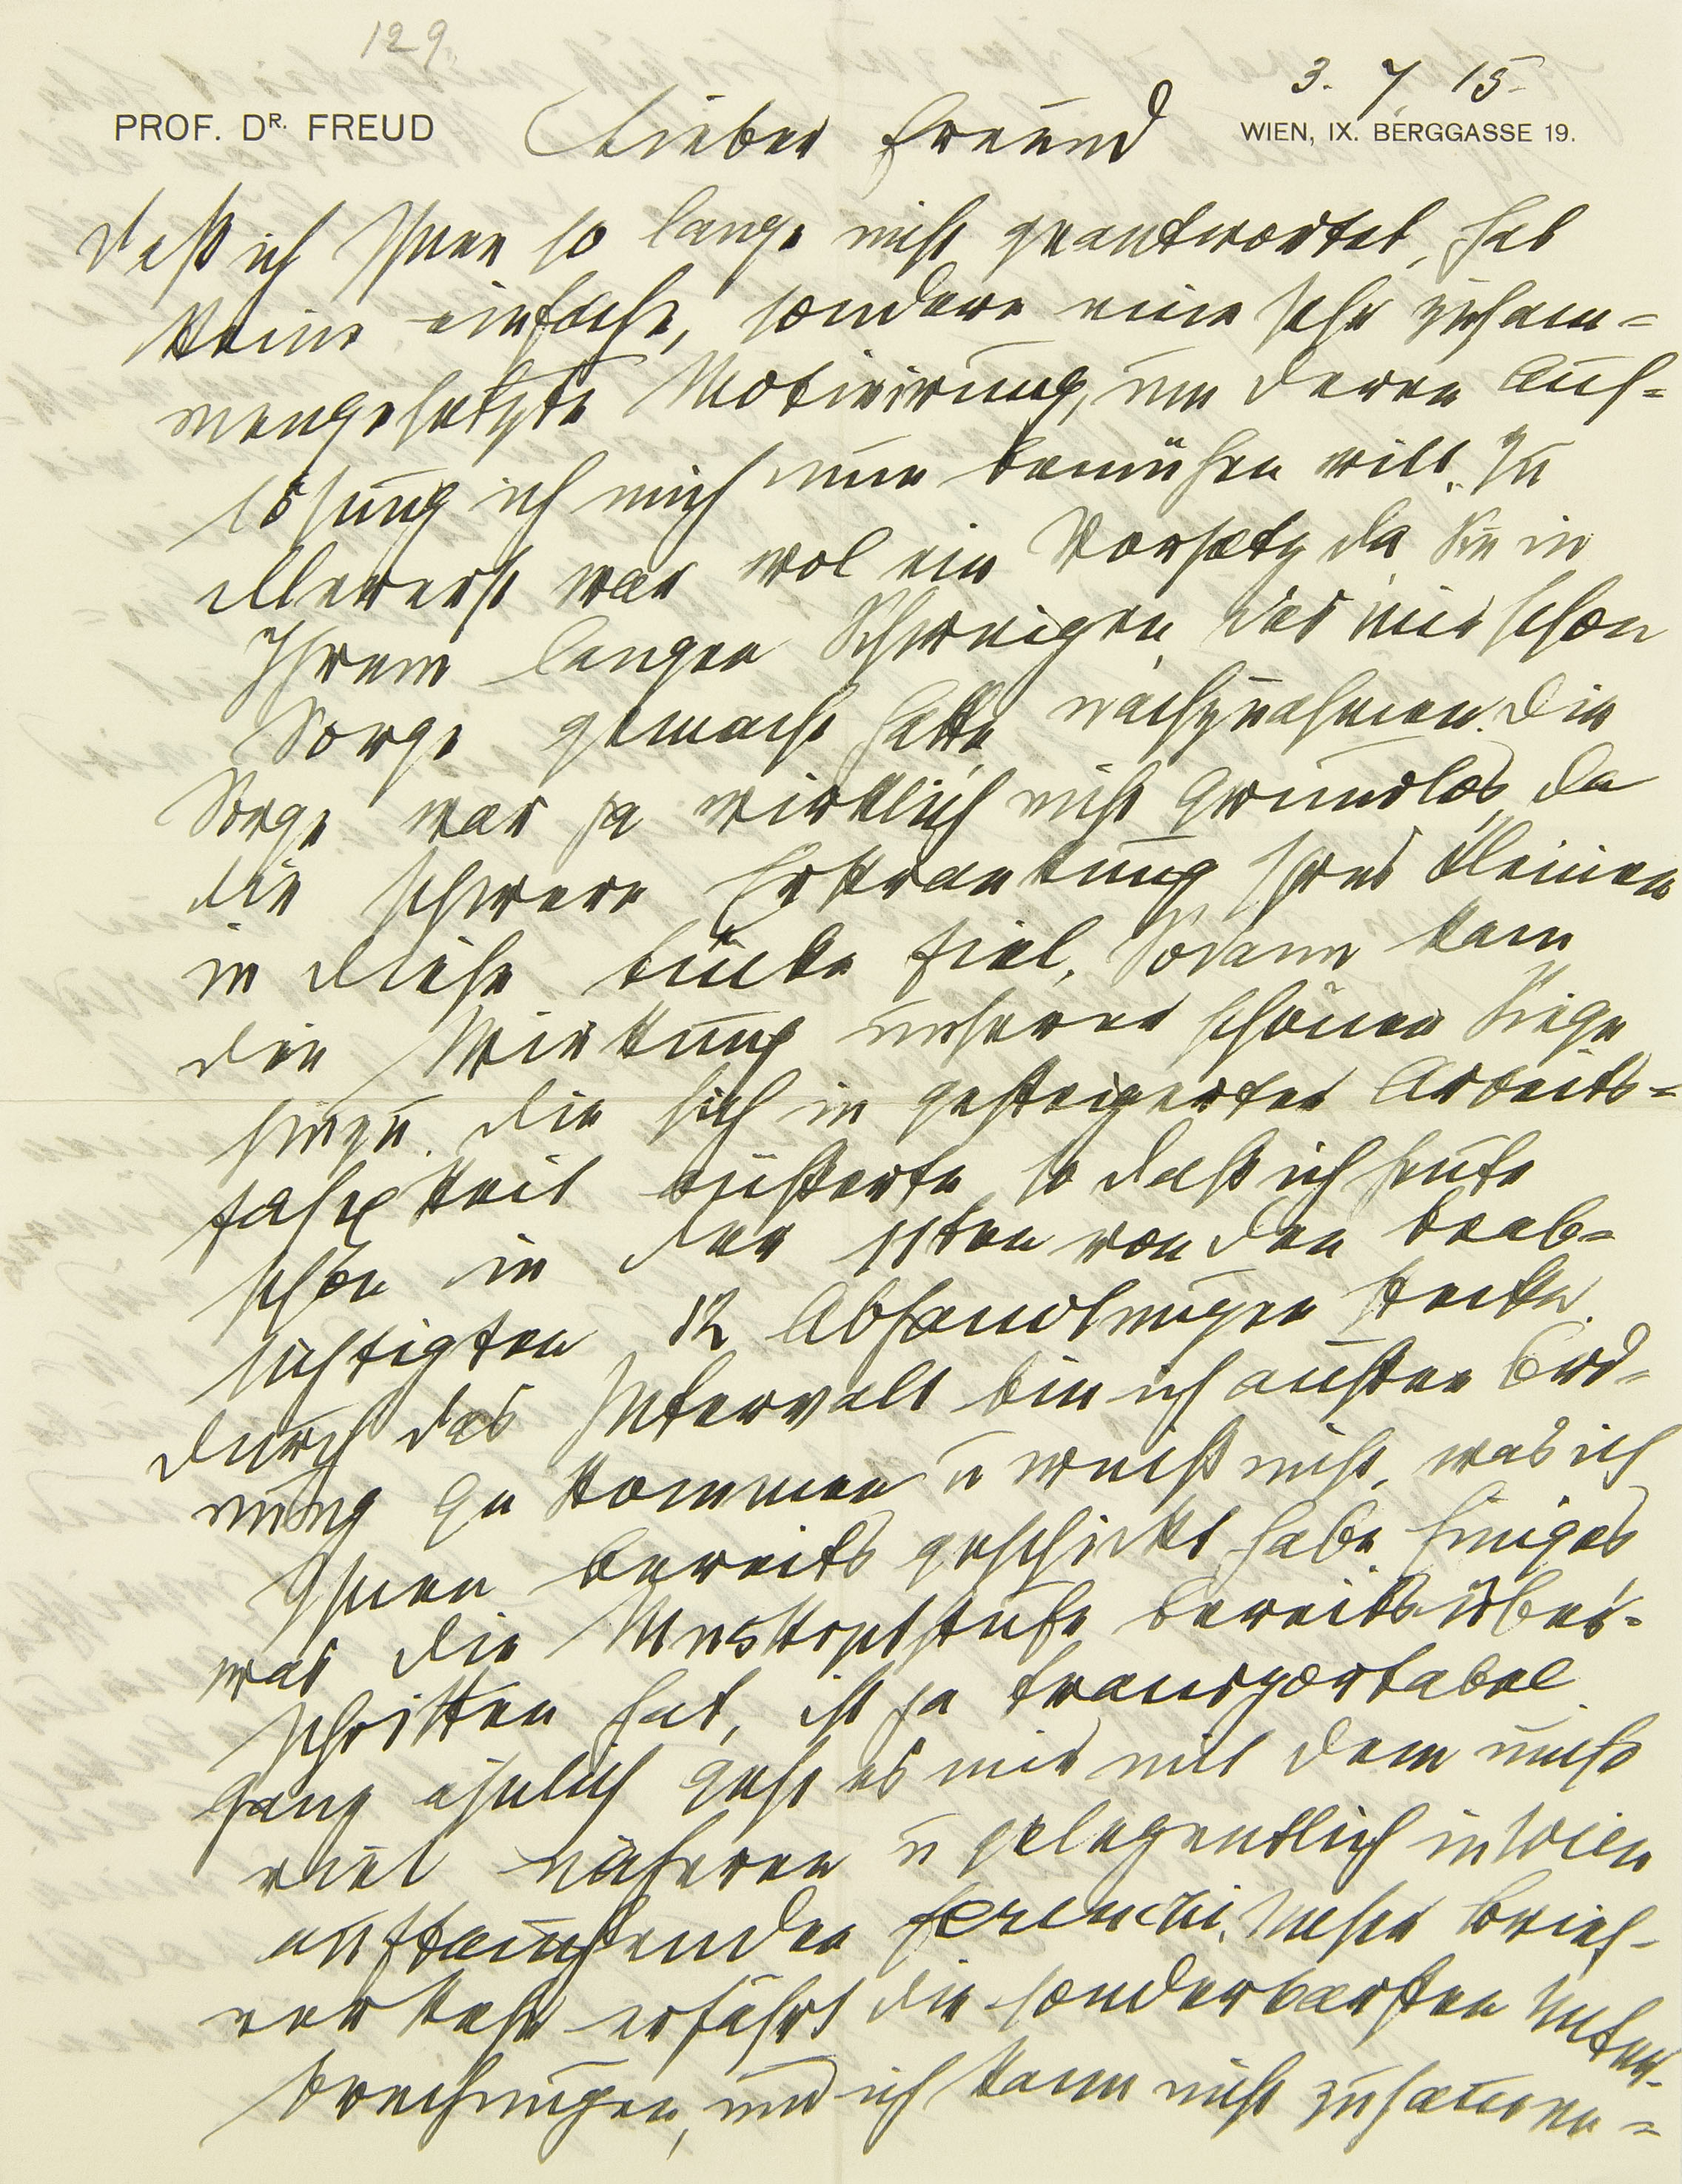 129.
3. 7 15.
PROF. DR. FREUD
WIEN, IX. BERGGASSE 19.
Lieber Freund
Daß ich Ihnen so lange nicht geantwortet, hat
keine einfache, sondern eine sehr zusam=
mengesetzte Motivirung, um deren Auf=
lösung ich mich nun bemühen will. Zu
allererst war wol ein Vorsatz da Sie in
Ihrem langen Schweigen, das mir schon
Sorge gemacht hatte, nachzuahmen. Die
Sorge war ja wirklich nicht grundlos, da
die schwere Erkrankung Ihres Kleinen
in diese Lücke fiel. Sodann kam
die Wirkung unserer schönen Siege
hinzu, die sich in gesteigerter Arbeits=
fähigkeit äußerte, so daß ich heute
schon in der 11ten von den beab=
sichtigten 12 Abhandlungen stecke.
Durch das Intervall bin ich außer Ord=
nung gekommen u weiß nicht, was ich
Ihnen bereits geschickt habe. Einiges
was die Unskriptstufe bereits über=
schritten hat, ist ja transportabel.
Ganz ähnlich geht es mir mit dem nicht
viel näheren u gelegentlich in Wien
auftauchenden Ferenczi. Unser Brief=
verkehr erfährt die sonderbarsten Unter=
brechungen, und ich kann nicht zusammen=